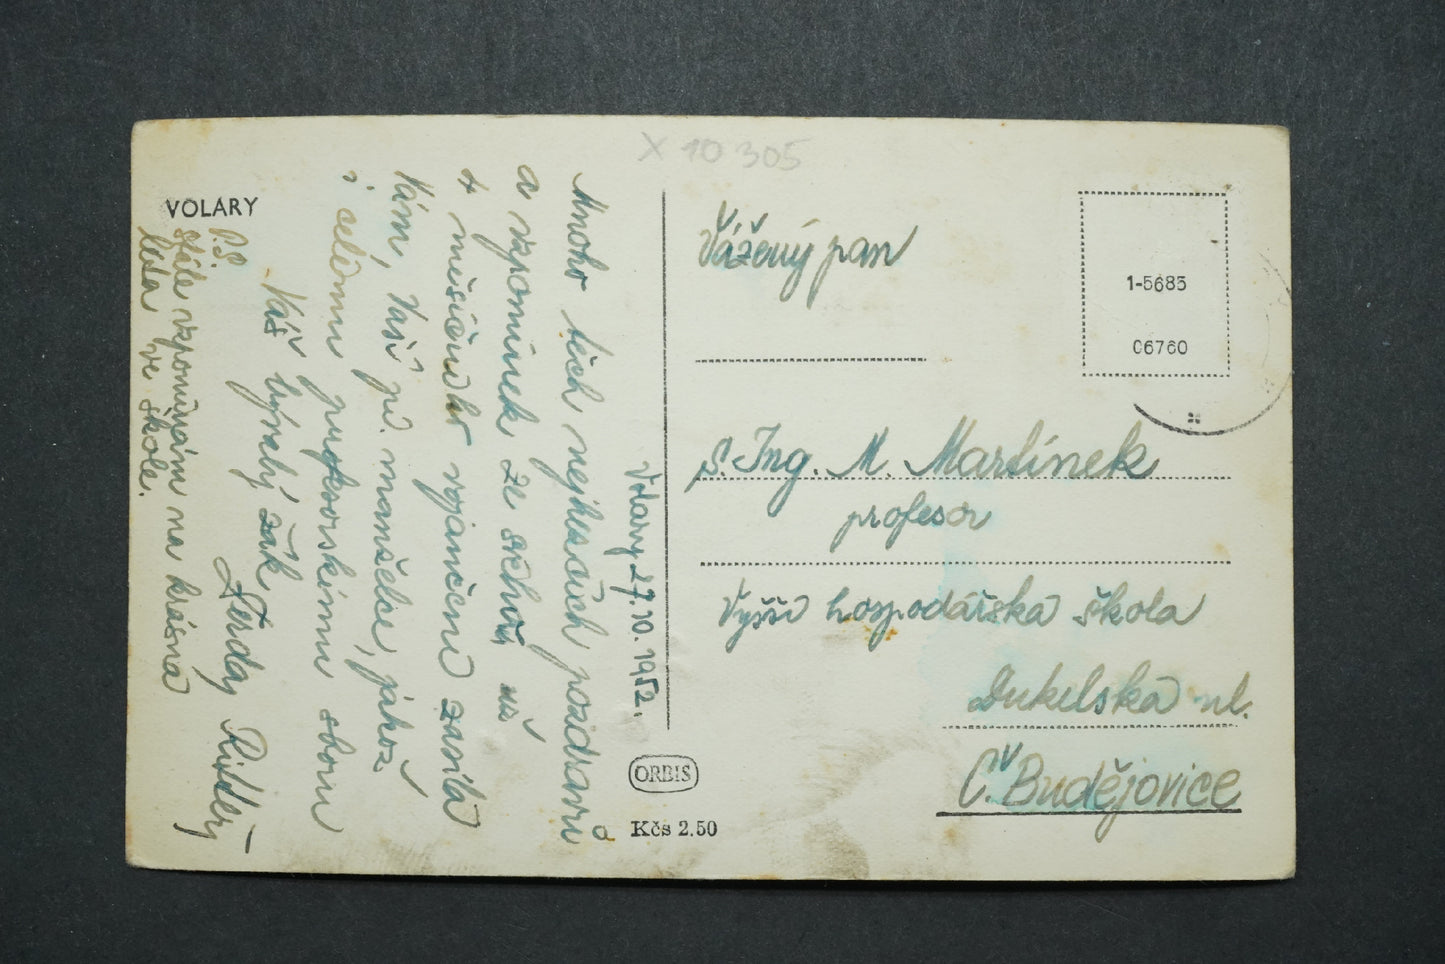 X 10 305
VOLARY
Volary 27.10.1952.
Mnoho těch nejhezčích pozdravů
a vzpomínek ze srdce, už
4 měsíčního vojančení zasílá
Vám, Vaší pí. manželce, jakož
i celému profesorskému sboru
Váš bývalý žák
Ferda
P.S.
stále vzpomínám na krásná
léta ve škole.
Vážený pan
s. Ing. M. Martínek
profesor
Vyšší hospodářská škola
Dukelská ul.
Č. Budějovice
1-5685
C6760
ORBIS
Kčs 2.50